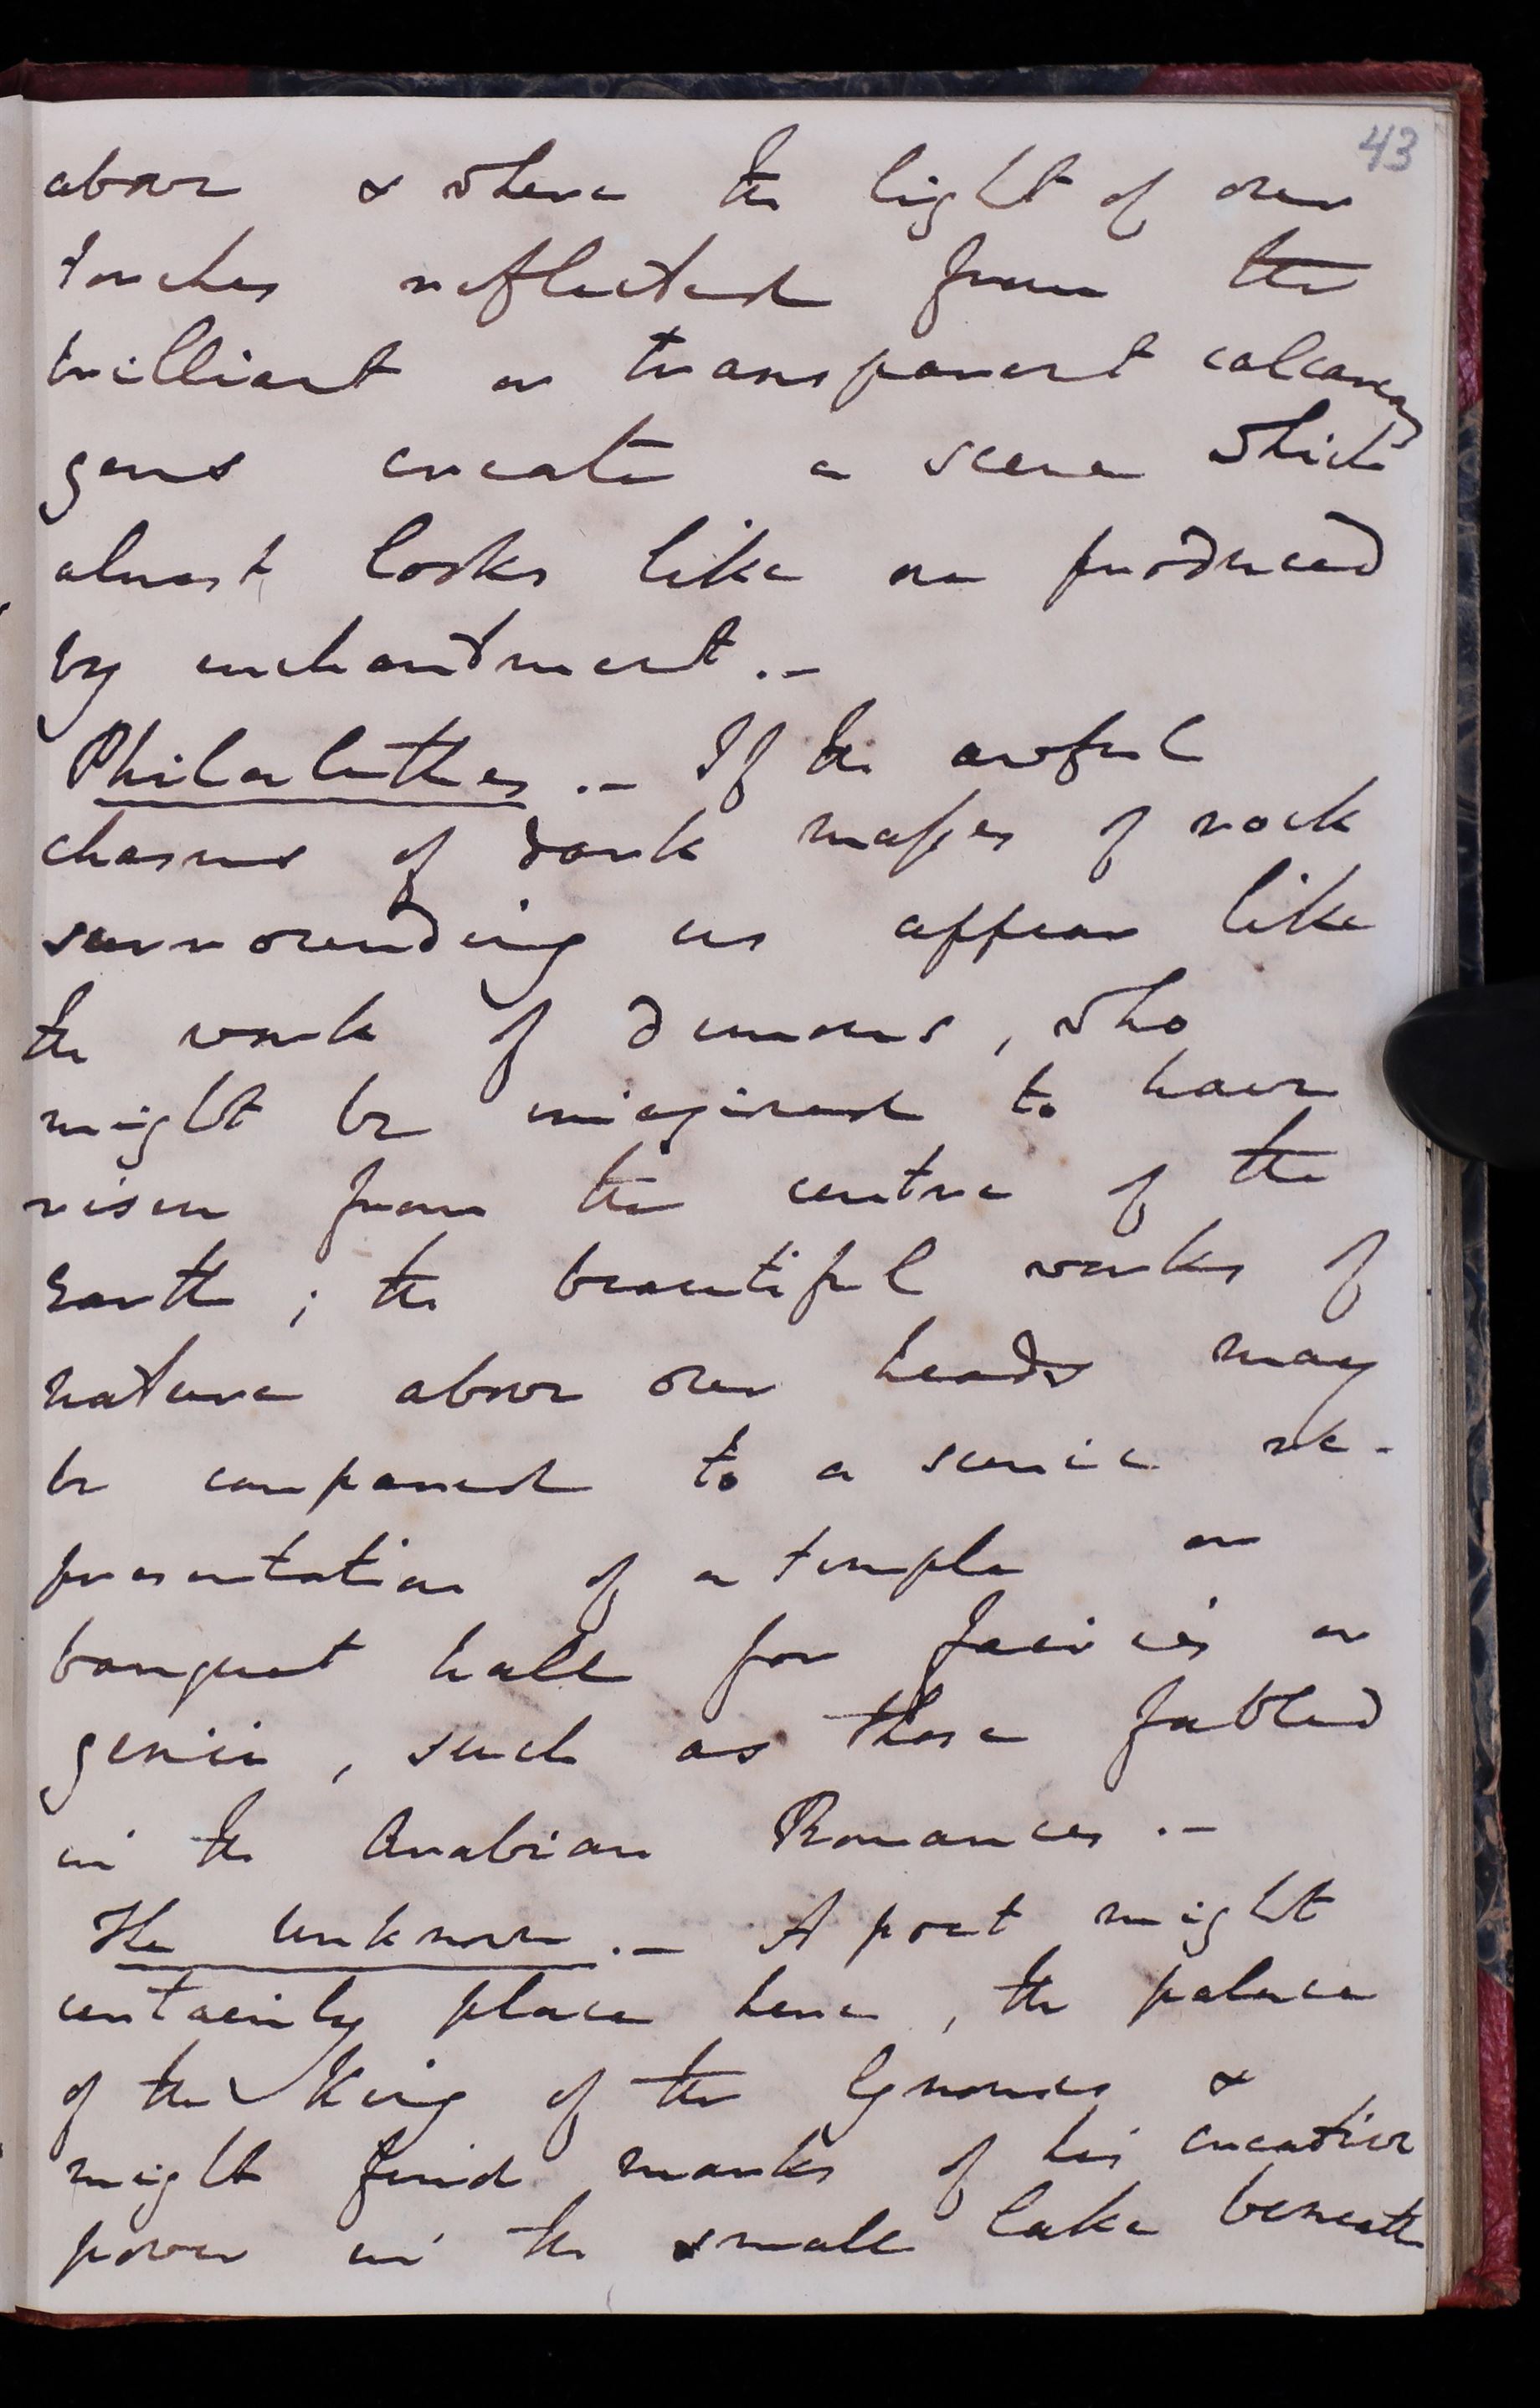 43
above & where the light of our
torches reflected from the
brilliant or transparent calcareous
gems create a scene which
almost looks like one produced
by enchantment.-
Philalethes.- If the awful
chasms of dark masses of rock
surrounding us appear like
the work of demons, who
might be imagined to have
risen from the centre of the
Earth; the beautiful works of
nature above our heads may
be compared to a scenic re-
presentation of a temple or
banquet hall for fairies or
genii, such as those fabled
in the Arabian Romances.-
The Unknown.- A poet might
certainly place here, the palace
of the King of the Gnomes &
might find marks of his creative
power in the small lake beneath